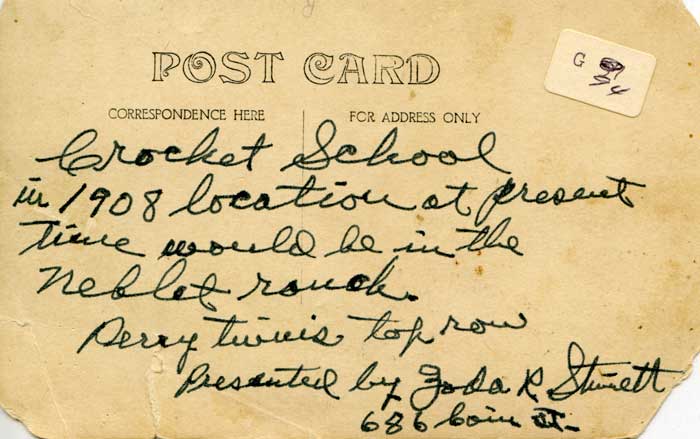 POST CARD
G
34
CORRESPONDENCE HERE
FOR ADDRESS ONLY
Crocket School
in 1908 location at present
time would be in the
Neblet ranch.
Perry twins top row
Presented by Zoda R Stinett
686 Coin St.